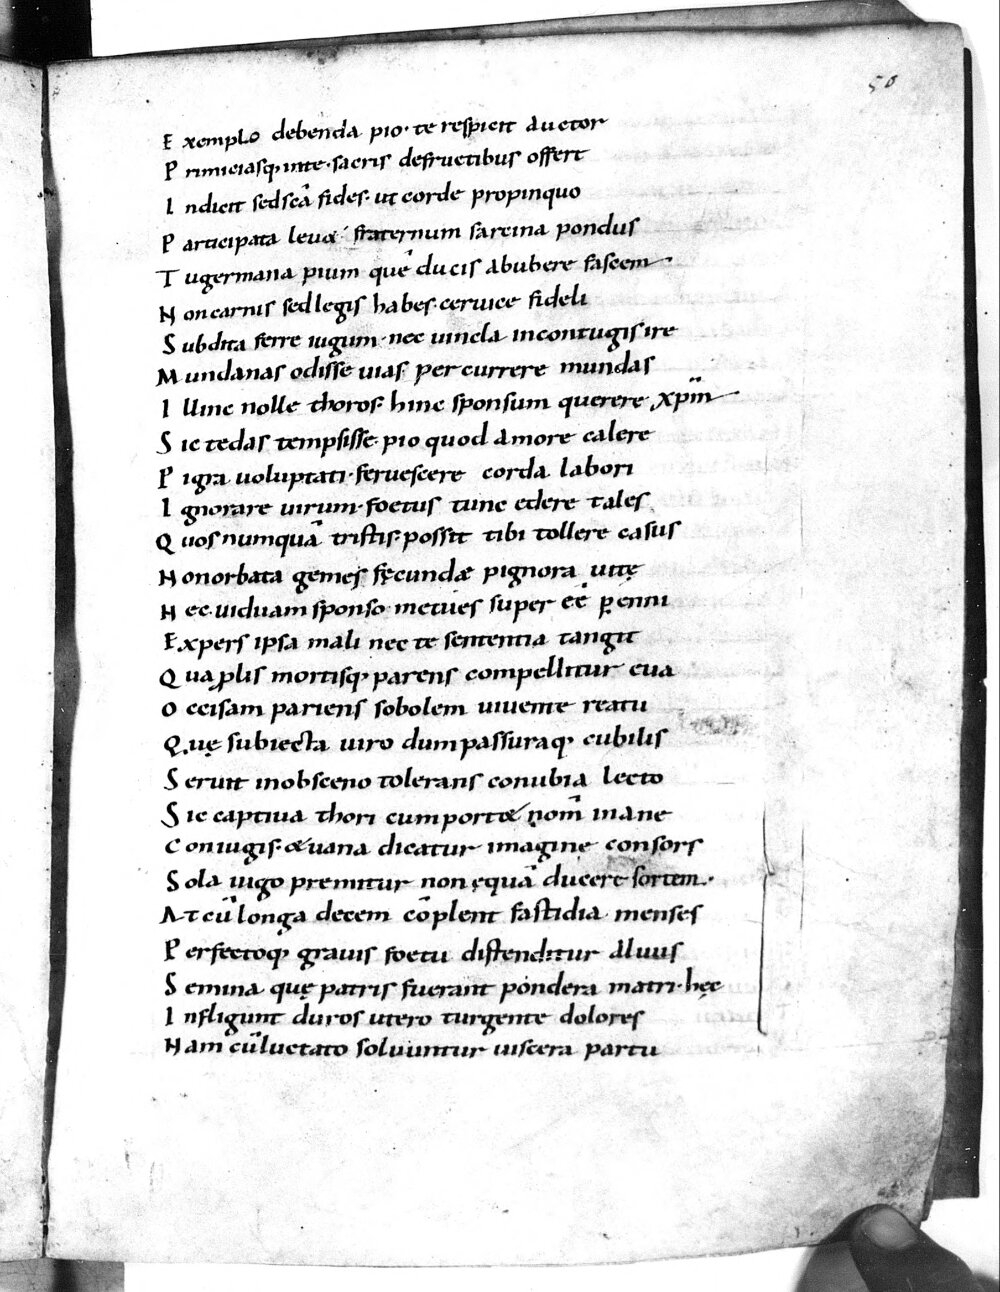 50
Exemplo debenda pio· te respicit auctor
Primiciasq; in te· sacris defructibus offert
Indicit sedscā fides· ut corde propinquo
Participata leu& fraternum sarcina pondus
Tugermana pium quē ducis abubere fascem
Non carnis sedlegis habes· ceruice fideli
Subdita ferre iugum· nec uincla inconiugis ire
Mundanas odisse uias percurrere mundas
Illinc nolle thoros· hinc sponsum querere xp̄m
Sic tedas tempsisse· pio quod amore calere
Pigra uoluptati· feruescere corda labori
Ignorare uirum· foetus tunc edere tales
Quos numquā tristis· possit tibi tollere casus
Non orbata gemes fęcundæ pignora uitę
Nec uiduam sponso· metues super eē penni
Expers ipsa mali nec te sententia tangit
Qua plis mortisq; parens compellitur eua
Occisam pariens sobolem uiuente reatu
Quę subiecta uiro dumpassuraq; cubilis
Seruit inobsceno tolerans conubia lecto
Sic captiua thori cumport& nom̄ inane
Coniugis· &uana dicatur imagine consors
Sola iugo premitur non ęquā ducere sortem·
At cū longa decem cōplent fastidia menses
Perfectoq; grauis foetu distenditur aluus
Semina quę patris fuerant pondera matri· hęc
Infligunt duros utero turgente dolores
Nam cū luctato soluuntur uiscera partu